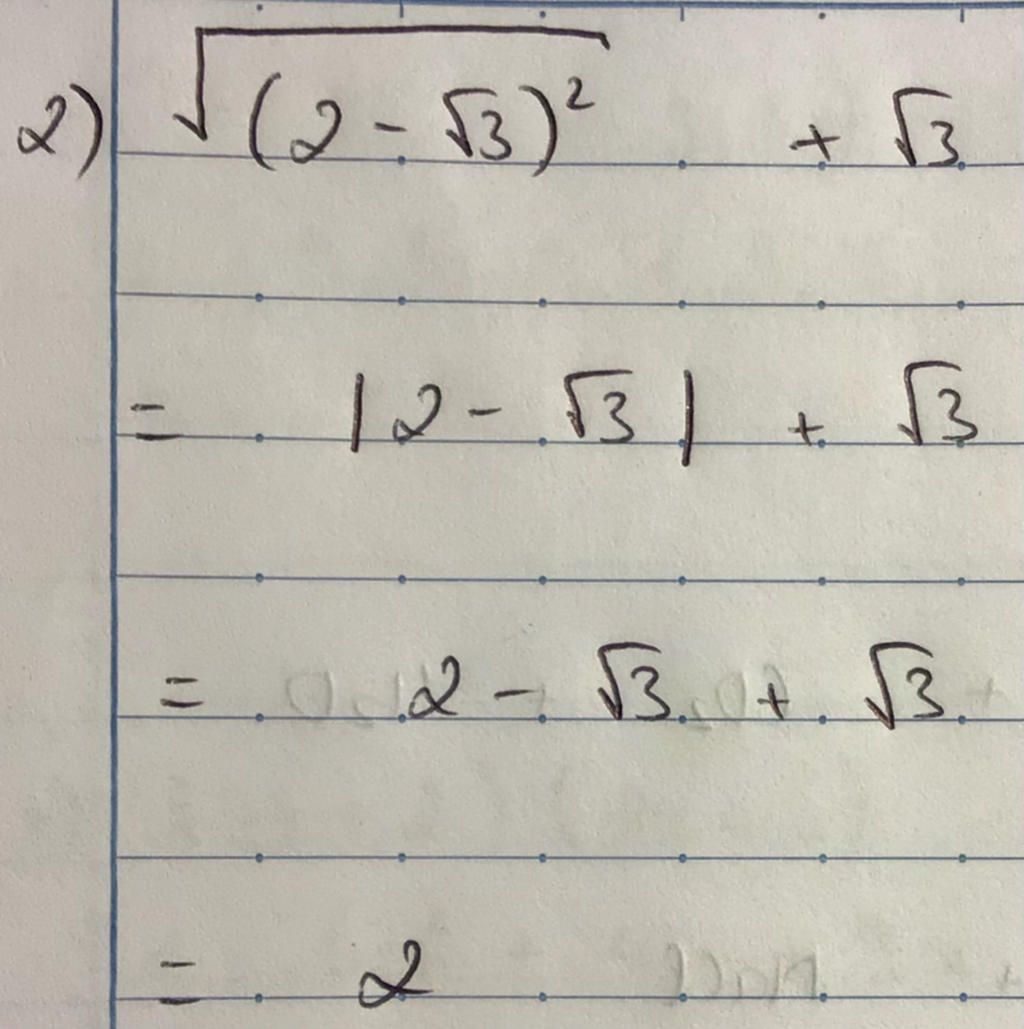 2) √(2 - √3)² + √3
= |2 - √3| + √3
= 2 - √3 + √3
= 2